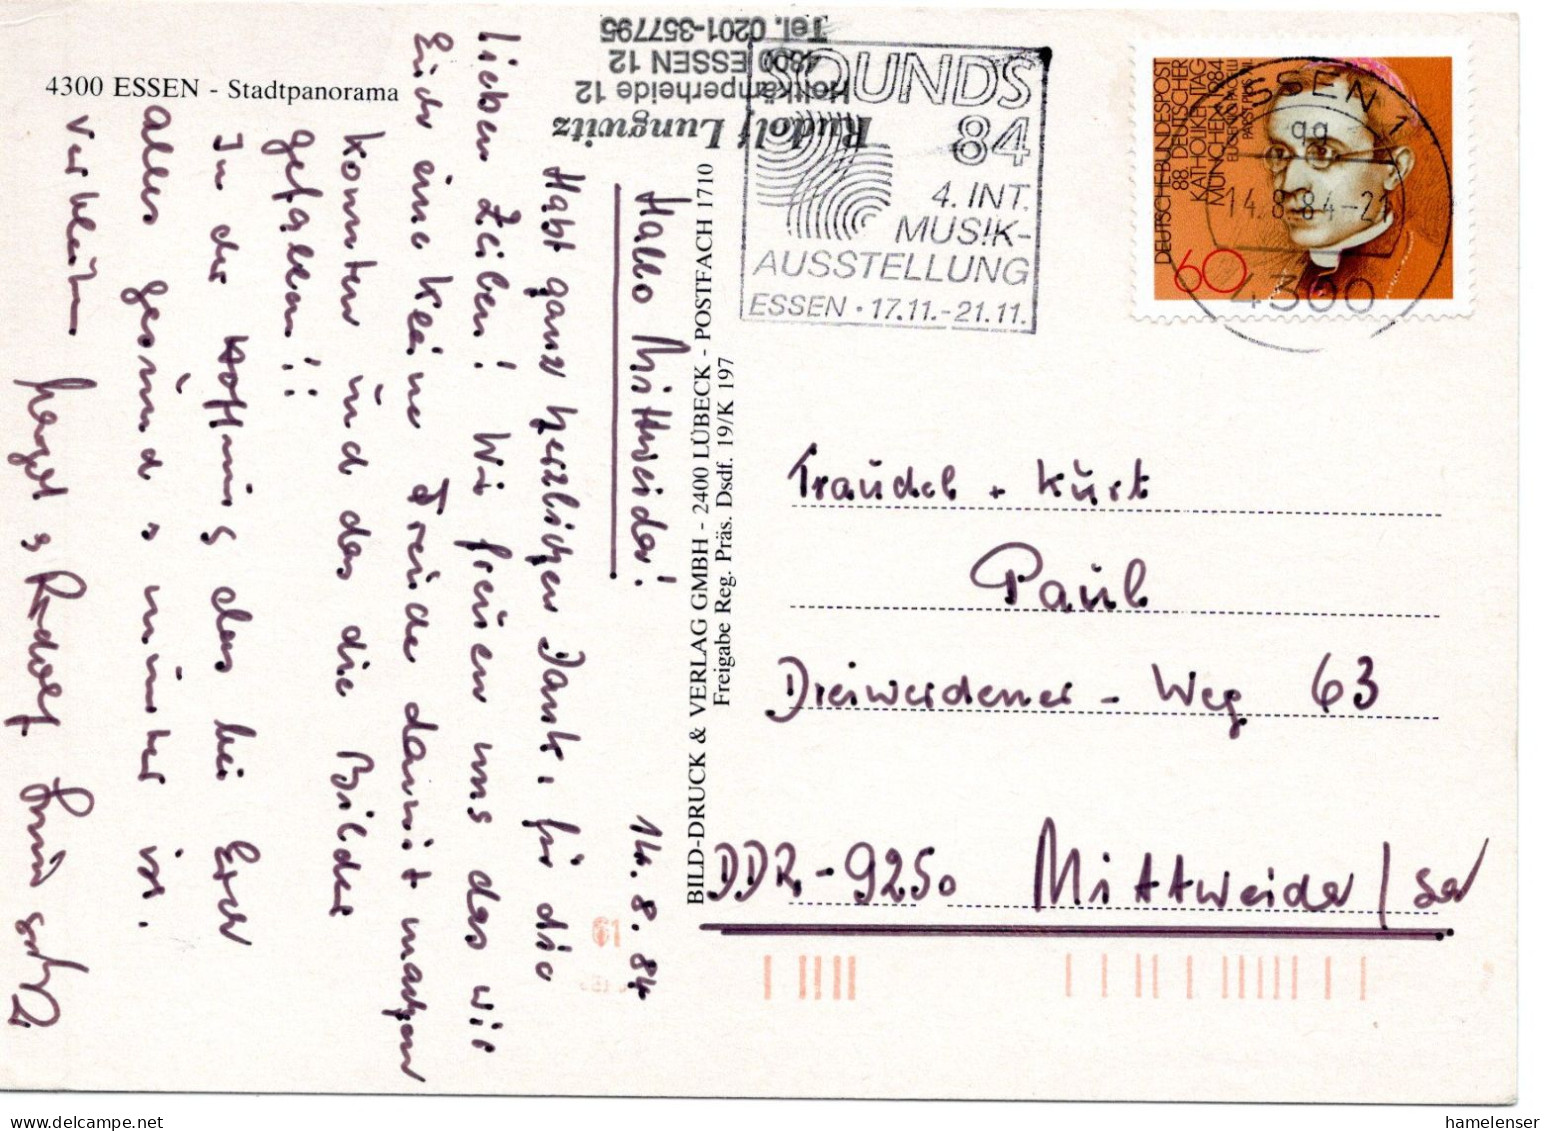 4300 ESSEN - Stadtpanorama
Rudolf Lungwitz
Holtkämperheide 12
4300 ESSEN 12
Tel. 0201-357795
SOUNDS
84
4. INT.
MUSIK-
AUSSTELLUNG
ESSEN · 17.11.-21.11.
DEUTSCHE BUNDESPOST
88. DEUTSCHER
KATHOLIKENTAG
MÜNCHEN 1984
EUGENIO PACELLI
PAPST PIUS XII.
60
ESSEN 1
gg
14.8.84-21
4300
14.8.84
Hallo Mittweida!
Habt ganz herzlichen Dank, für die
lieben Zeilen! Wir freuen uns das wir
Euch eine kleine Freude damit machen
konnten und das die Bilder
gefallen!!
In der Hoffnung das bei Euch
alles gesund & munter ist.
verbleiben
& Rudolf
BILD-DRUCK & VERLAG GMBH - 2400 LÜBECK - POSTFACH 1710
Freigabe Reg. Präs. Dsdf. 19/K 197
Traudel + Kurt
Paul
Dreiwerdener - Weg 63
DDR-9250 Mittweida / Sa
61
hamelenser